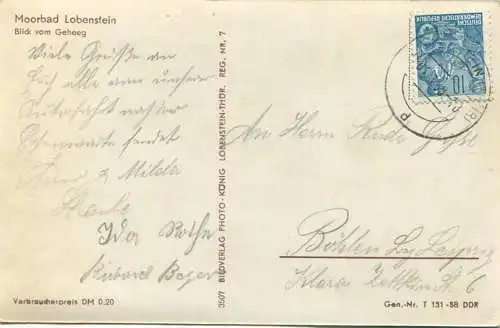 Moorbad Lobenstein
Blick vom Geheeg
Viele Grüße an
Euch alle von unserer
Autofahrt nach der
sendet
& Milda
Ida Rothe
Richard
Verbraucherpreis DM 0.20
3507 BILDVERLAG PHOTO-KÖNIG LOBENSTEIN-THÜR. REG. NR. 7
DEUTSCHE
DEMOKRATISCHE REPUBLIK
10
An Herrn
Böhlen by Leipzig
Klara Zetkin St. 6
Gen.-Nr. T 131-58 DDR